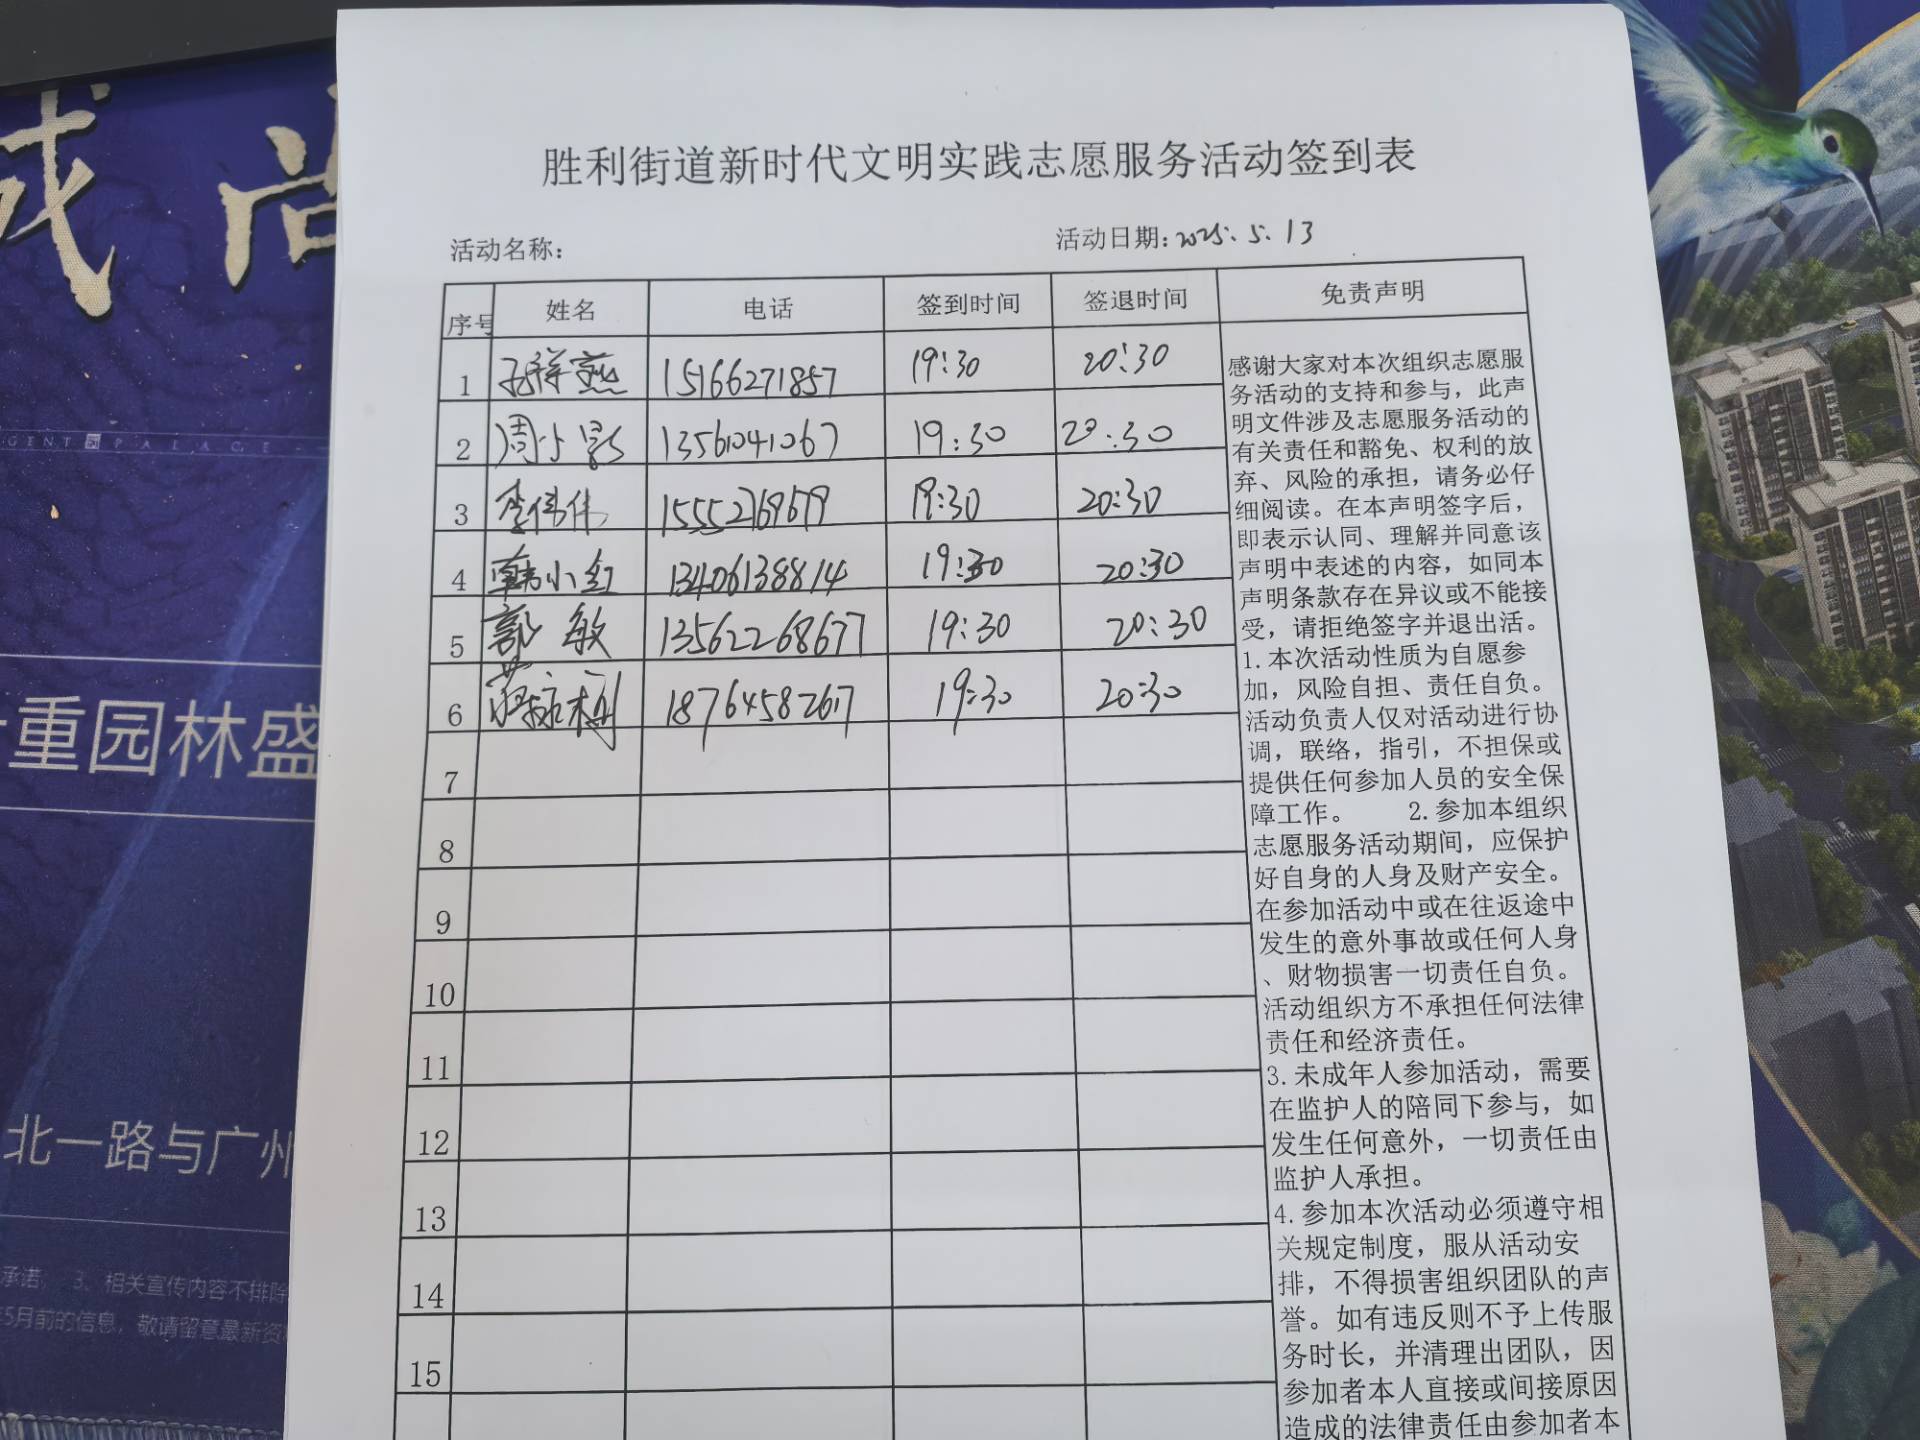 城尚
GENT PALACE
重园林盛
北一路与广州
承诺； 3、相关宣传内容不排除
5月前的信息，敬请留意最新资
胜利街道新时代文明实践志愿服务活动签到表
活动名称： 活动日期：2025.5.13
序号 姓名 电话 签到时间 签退时间 免责声明
1 孙祥燕 15166271857 19:30 20:30
2 周小影 13561041067 19:30 20:30
3 李伟伟 19:30 20:30
4 韩小红 13406138814 19:30 20:30
5 郭敏 13562268677 19:30 20:30
6 1876458267 19:30 20:30
7
8
9
10
11
12
13
14
15
感谢大家对本次组织志愿服
务活动的支持和参与，此声
明文件涉及志愿服务活动的
有关责任和豁免、权利的放
弃、风险的承担，请务必仔
细阅读。在本声明签字后，
即表示认同、理解并同意该
声明中表述的内容，如同本
声明条款存在异议或不能接
受，请拒绝签字并退出活。
1.本次活动性质为自愿参
加，风险自担、责任自负。
活动负责人仅对活动进行协
调，联络，指引，不担保或
提供任何参加人员的安全保
障工作。 2.参加本组织
志愿服务活动期间，应保护
好自身的人身及财产安全。
在参加活动中或在往返途中
发生的意外事故或任何人身
、财物损害一切责任自负。
活动组织方不承担任何法律
责任和经济责任。
3.未成年人参加活动，需要
在监护人的陪同下参与，如
发生任何意外，一切责任由
监护人承担。
4.参加本次活动必须遵守相
关规定制度，服从活动安
排，不得损害组织团队的声
誉。如有违反则不予上传服
务时长，并清理出团队，因
参加者本人直接或间接原因
造成的法律责任由参加者本